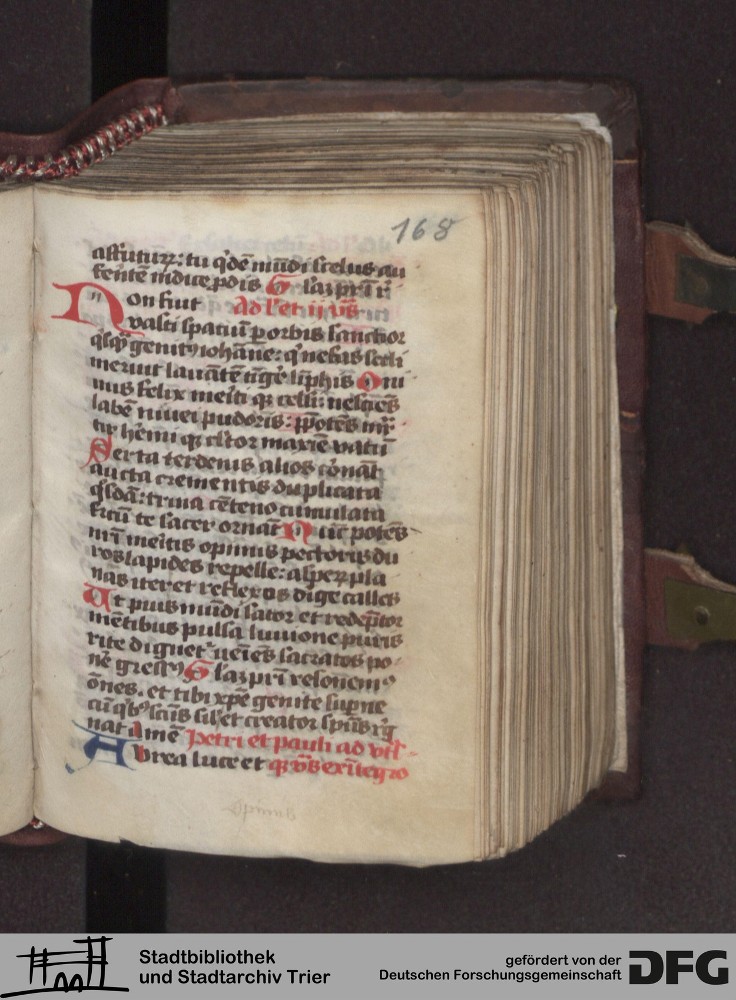 168
astruitur: tu qdē mūdi scelus au
ferētē indice pdis G lāz prī i
Non fuit Ad l'et ij vs
vasti spatiū p orbis sanctior
qsq genit iohāne: q nefas secli
meruit lavātē tīge līphis O ni
mis felix meiti qz celsi: nesciēs
labē nivei pudoris: ppotēs mr
tir hemi qz cltor maxiē vatū
Serta terdenis alios cōnāt
aucta crementis duplicata
qsdā: trina cēteno cumulata
fructū te sacer ornāt Nūc potēs
nrī meitis opimis pectoris du
ros lapides repelle: asperz pla
nās iter et reflexos dige calles
Ut pius mūdi sator et redēptor
mētibus pulsa luvione puris
rite diguet veiēs sacratos po
nē gressq G laz prī resonem
ōnes. et tibi xpē genite supne
cū qb scūs sil et creator spūs rg
nat amē Petri et pauli ad vlt
Aurea luce et
Stadtbibliothek
und Stadtarchiv Trier
gefördert von der
Deutschen Forschungsgemeinschaft
DFG